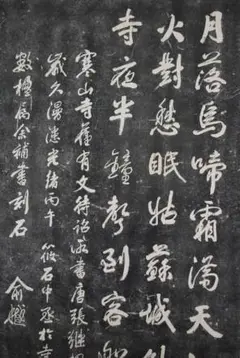 月落烏啼霜滿天
火對愁眠姑蘇城外
寺夜半鐘聲到客
寒山寺舊有文待詔所書唐張繼
歲久漫漶光緒丙午筱石中丞於寺
數楹屬余補書刻石
俞樾